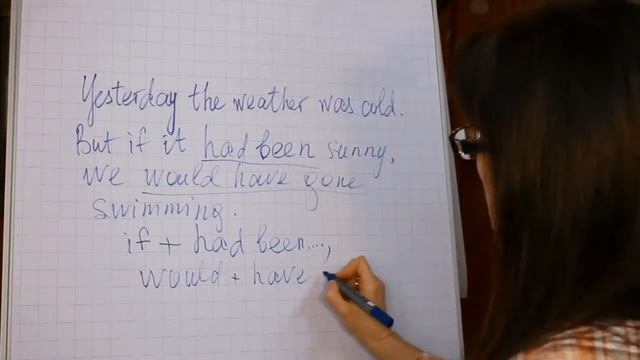 Yesterday the weather was cold.
But if it had been sunny,
we would have gone
swimming.
if + had been...,
would + have